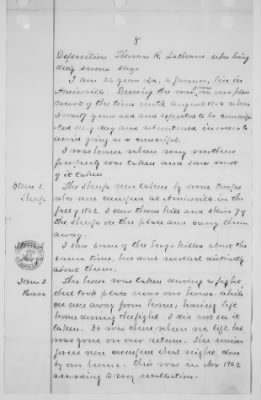 8
Deposition Thomas R. Latham who being
duly sworn says
I am 36 years old, a farmer, live in
Amissville. During the war,
County of the time until August 1864 when
I was 17 years and expected to be conscrip-
ted any day and in order to
avoid going as a conscript.
I was home when my mother's
property was taken and saw some
of it taken
Item 1. The sheep were taken by some troops
Sheep who were camped at Amissville in the
fall of 1862. I saw them kill and skin 7 of
the sheep on the place and carry them
away.
I saw some of the hogs killed about the
same time, but can't distinctly
about them.
Item 3 The horse was taken during a fight
Horse that took place near our house, while
we were away from home, having left
home during the fight. I did not see it
taken. It was there when we left but
was gone on our return. The Union
forces were camped that night close
by our house. This was in Nov 1862
according to my recollection.